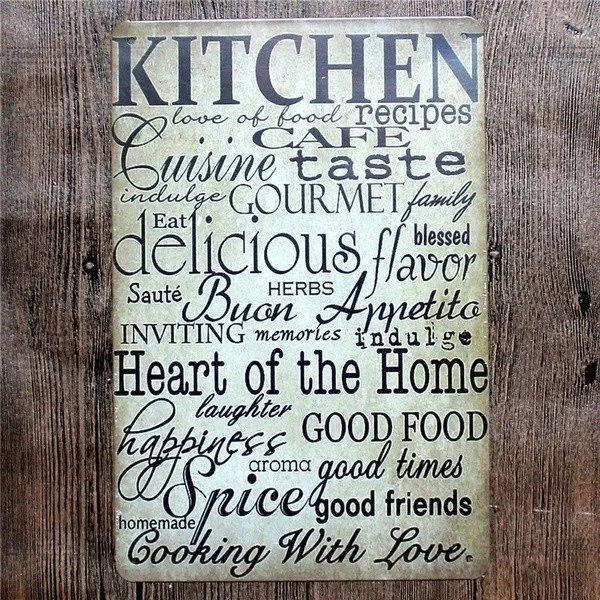 KITCHEN
love of food recipes
CAFE
Cuisine taste
indulge GOURMET family
Eat
delicious blessed
flavor
Sauté HERBS
Buon Appetito
INVITING memories indulge
Heart of the Home
laughter
happiness GOOD FOOD
aroma good times
Spice good friends
homemade
Cooking With Love